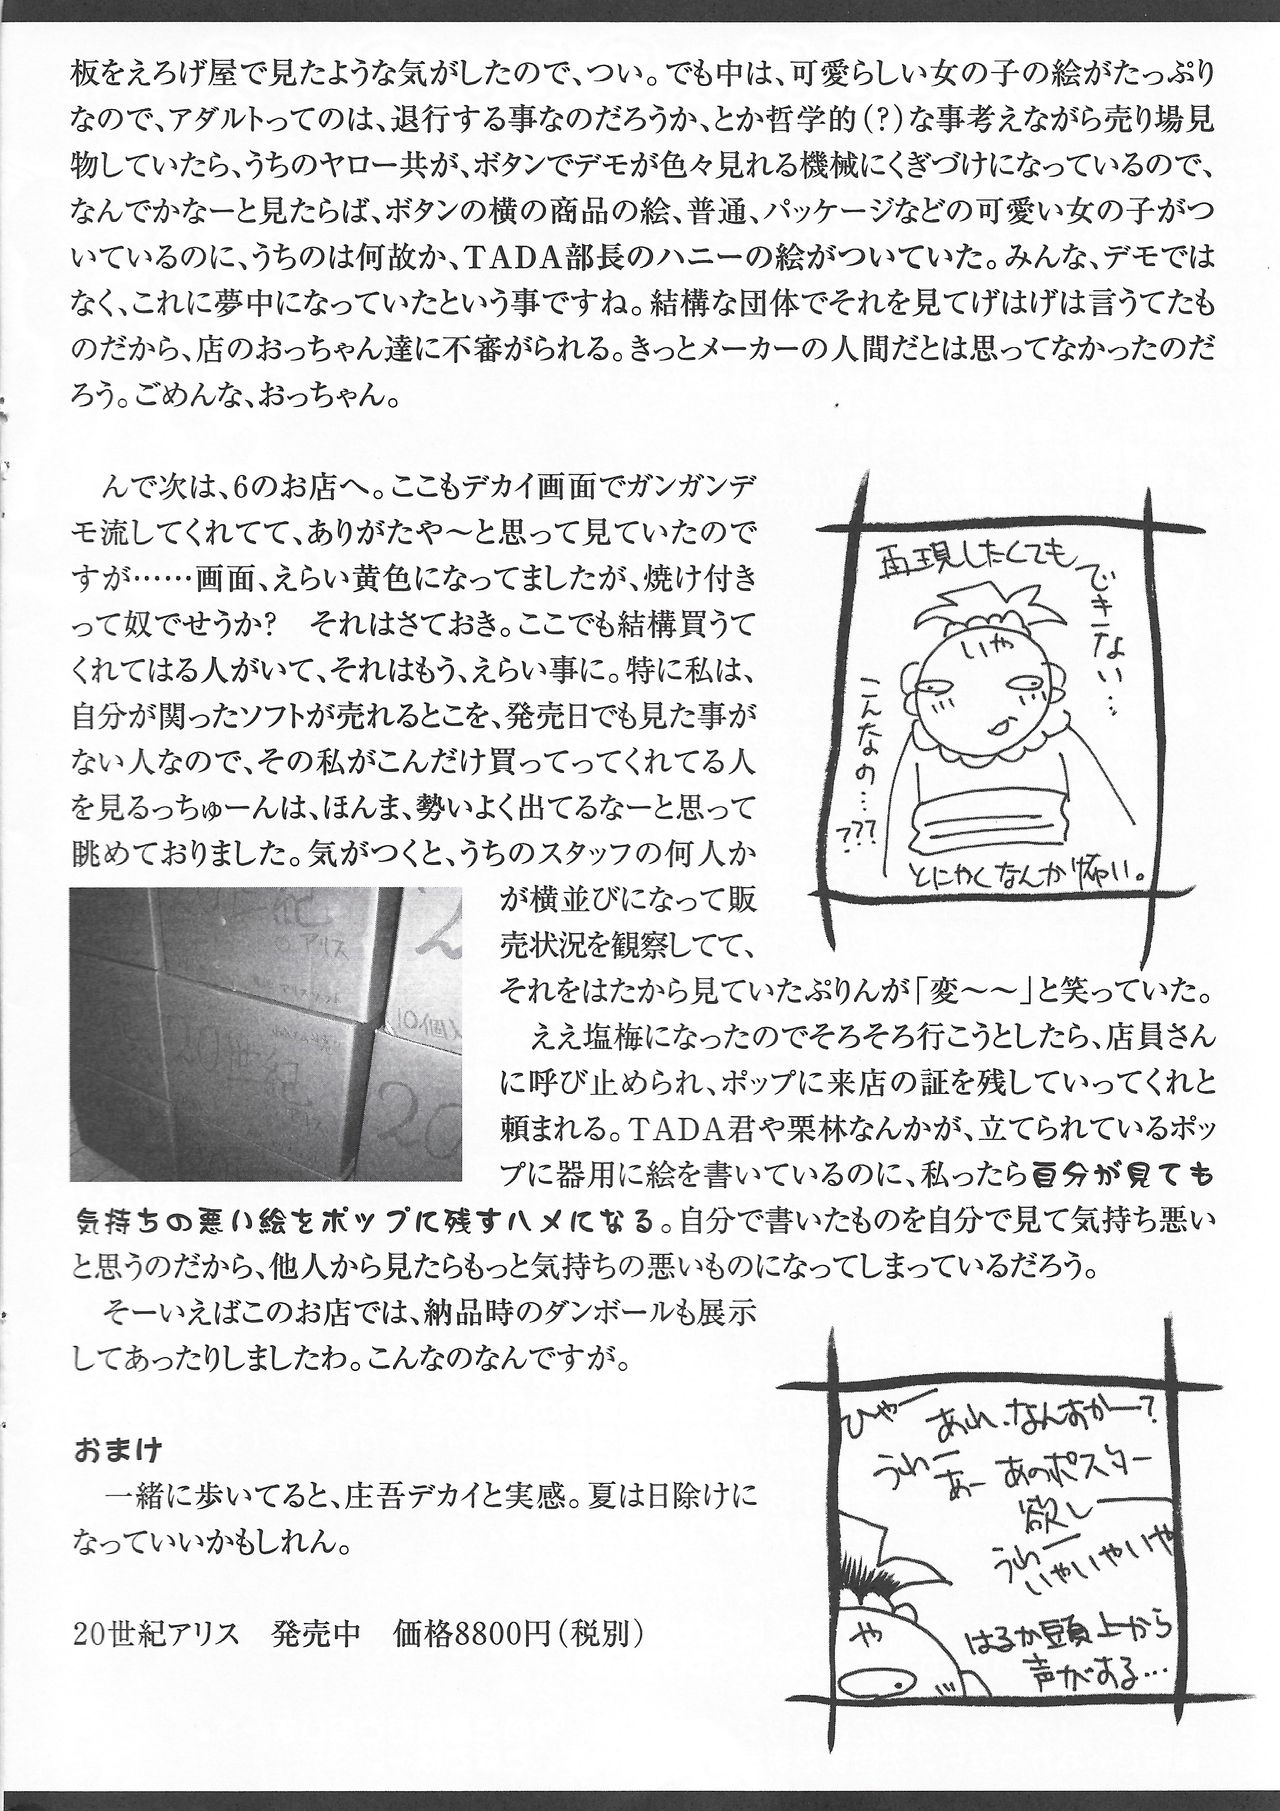 板をえろげ屋で見たような気がしたので、つい。でも中は、可愛らしい女の子の絵がたっぷり
なので、アダルトってのは、退行する事なのだろうか、とか哲学的（？）な事考えながら売り場見
物していたら、うちのヤロー共が、ボタンでデモが色々見れる機械にくぎづけになっているので、
なんでかなーと見たらば、ボタンの横の商品の絵、普通、パッケージなどの可愛い女の子がつ
いているのに、うちのは何故か、TADA部長のハニーの絵がついていた。みんな、デモでは
なく、これに夢中になっていたという事ですね。結構な団体でそれを見てげはげは言うてたも
のだから、店のおっちゃん達に不審がられる。きっとメーカーの人間だとは思ってなかったのだ
ろう。ごめんな、おっちゃん。
んで次は、6のお店へ。ここもデカイ画面でガンガンデ
モ流してくれてて、ありがたや～と思って見ていたので
すが……画面、えらい黄色になってましたが、焼け付き
って奴でせうか?　それはさておき。ここでも結構買うて
くれてはる人がいて、それはもう、えらい事に。特に私は、
自分が関ったソフトが売れるとこを、発売日でも見た事が
ない人なので、その私がこんだけ買ってってくれてる人
を見るっちゅーんは、ほんま、勢いよく出てるなーと思って
眺めておりました。気がつくと、うちのスタッフの何人か
が横並びになって販
売状況を観察してて、
それをはたから見ていたぷりんが「変～～」と笑っていた。
ええ塩梅になったのでそろそろ行こうとしたら、店員さん
に呼び止められ、ポップに来店の証を残していってくれと
頼まれる。TADA君や栗林なんかが、立てられているポッ
プに器用に絵を書いているのに、私ったら自分が見ても
気持ちの悪い絵をポップに残すハメになる。自分で書いたものを自分で見て気持ち悪い
と思うのだから、他人から見たらもっと気持ちの悪いものになってしまっているだろう。
そーいえばこのお店では、納品時のダンボールも展示
してあったりしましたわ。こんなのなんですが。
おまけ
一緒に歩いてると、庄吾デカイと実感。夏は日除けに
なっていいかもしれん。
20世紀アリス　発売中　価格8800円（税別）
再現したくても
できない…
いや
こんなの…
???
とにかくなんか怖い。
紀
アリス
20世紀
20
ひゃー
あれ、なんすかー?
うわー
あー
あのポスター
欲しー
うわー
いやいやいや
や
はるか頭上から
声がする…